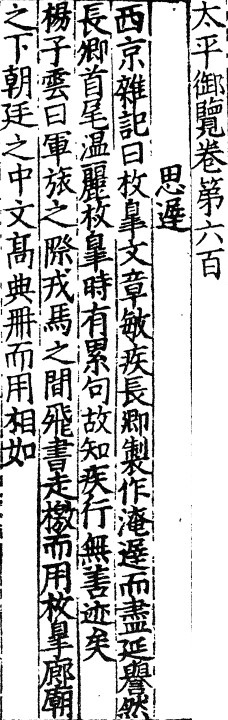 太平御覽卷第六百
思遲
西京雜記曰枚臯文章敏疾長卿製作淹遲而盡延譽然
長卿首尾温麗枚臯時有累句故知疾行無善迹矣
楊子雲曰軍旅之際戎馬之間飛書走檄而用枚臯廊廟
之下朝廷之中文髙典册而用相如